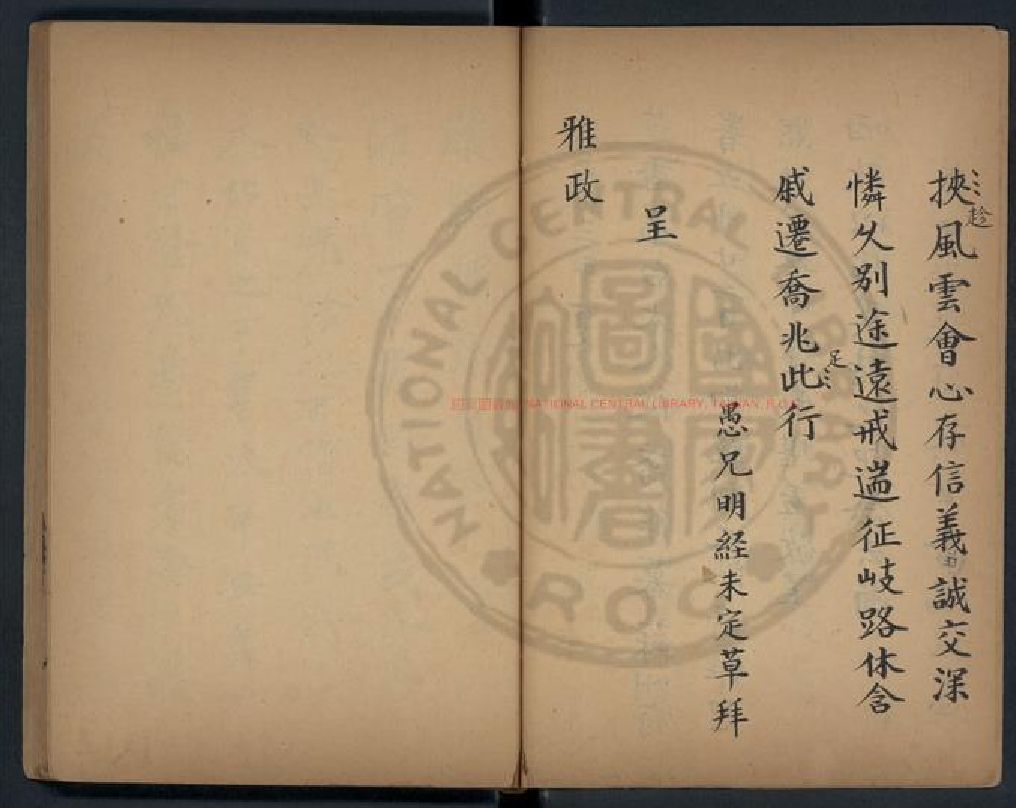 挾風雲會心存信義誠交深
趁
憐久別途遠戒遄征岐路休含
戚遷喬兆此行
足
愚兄明経未定草拜
呈
雅政
國家圖書館 NATIONAL CENTRAL LIBRARY, TAIWAN, R.O.C
NATIONAL CENTRAL LIBRARY
R.O.C